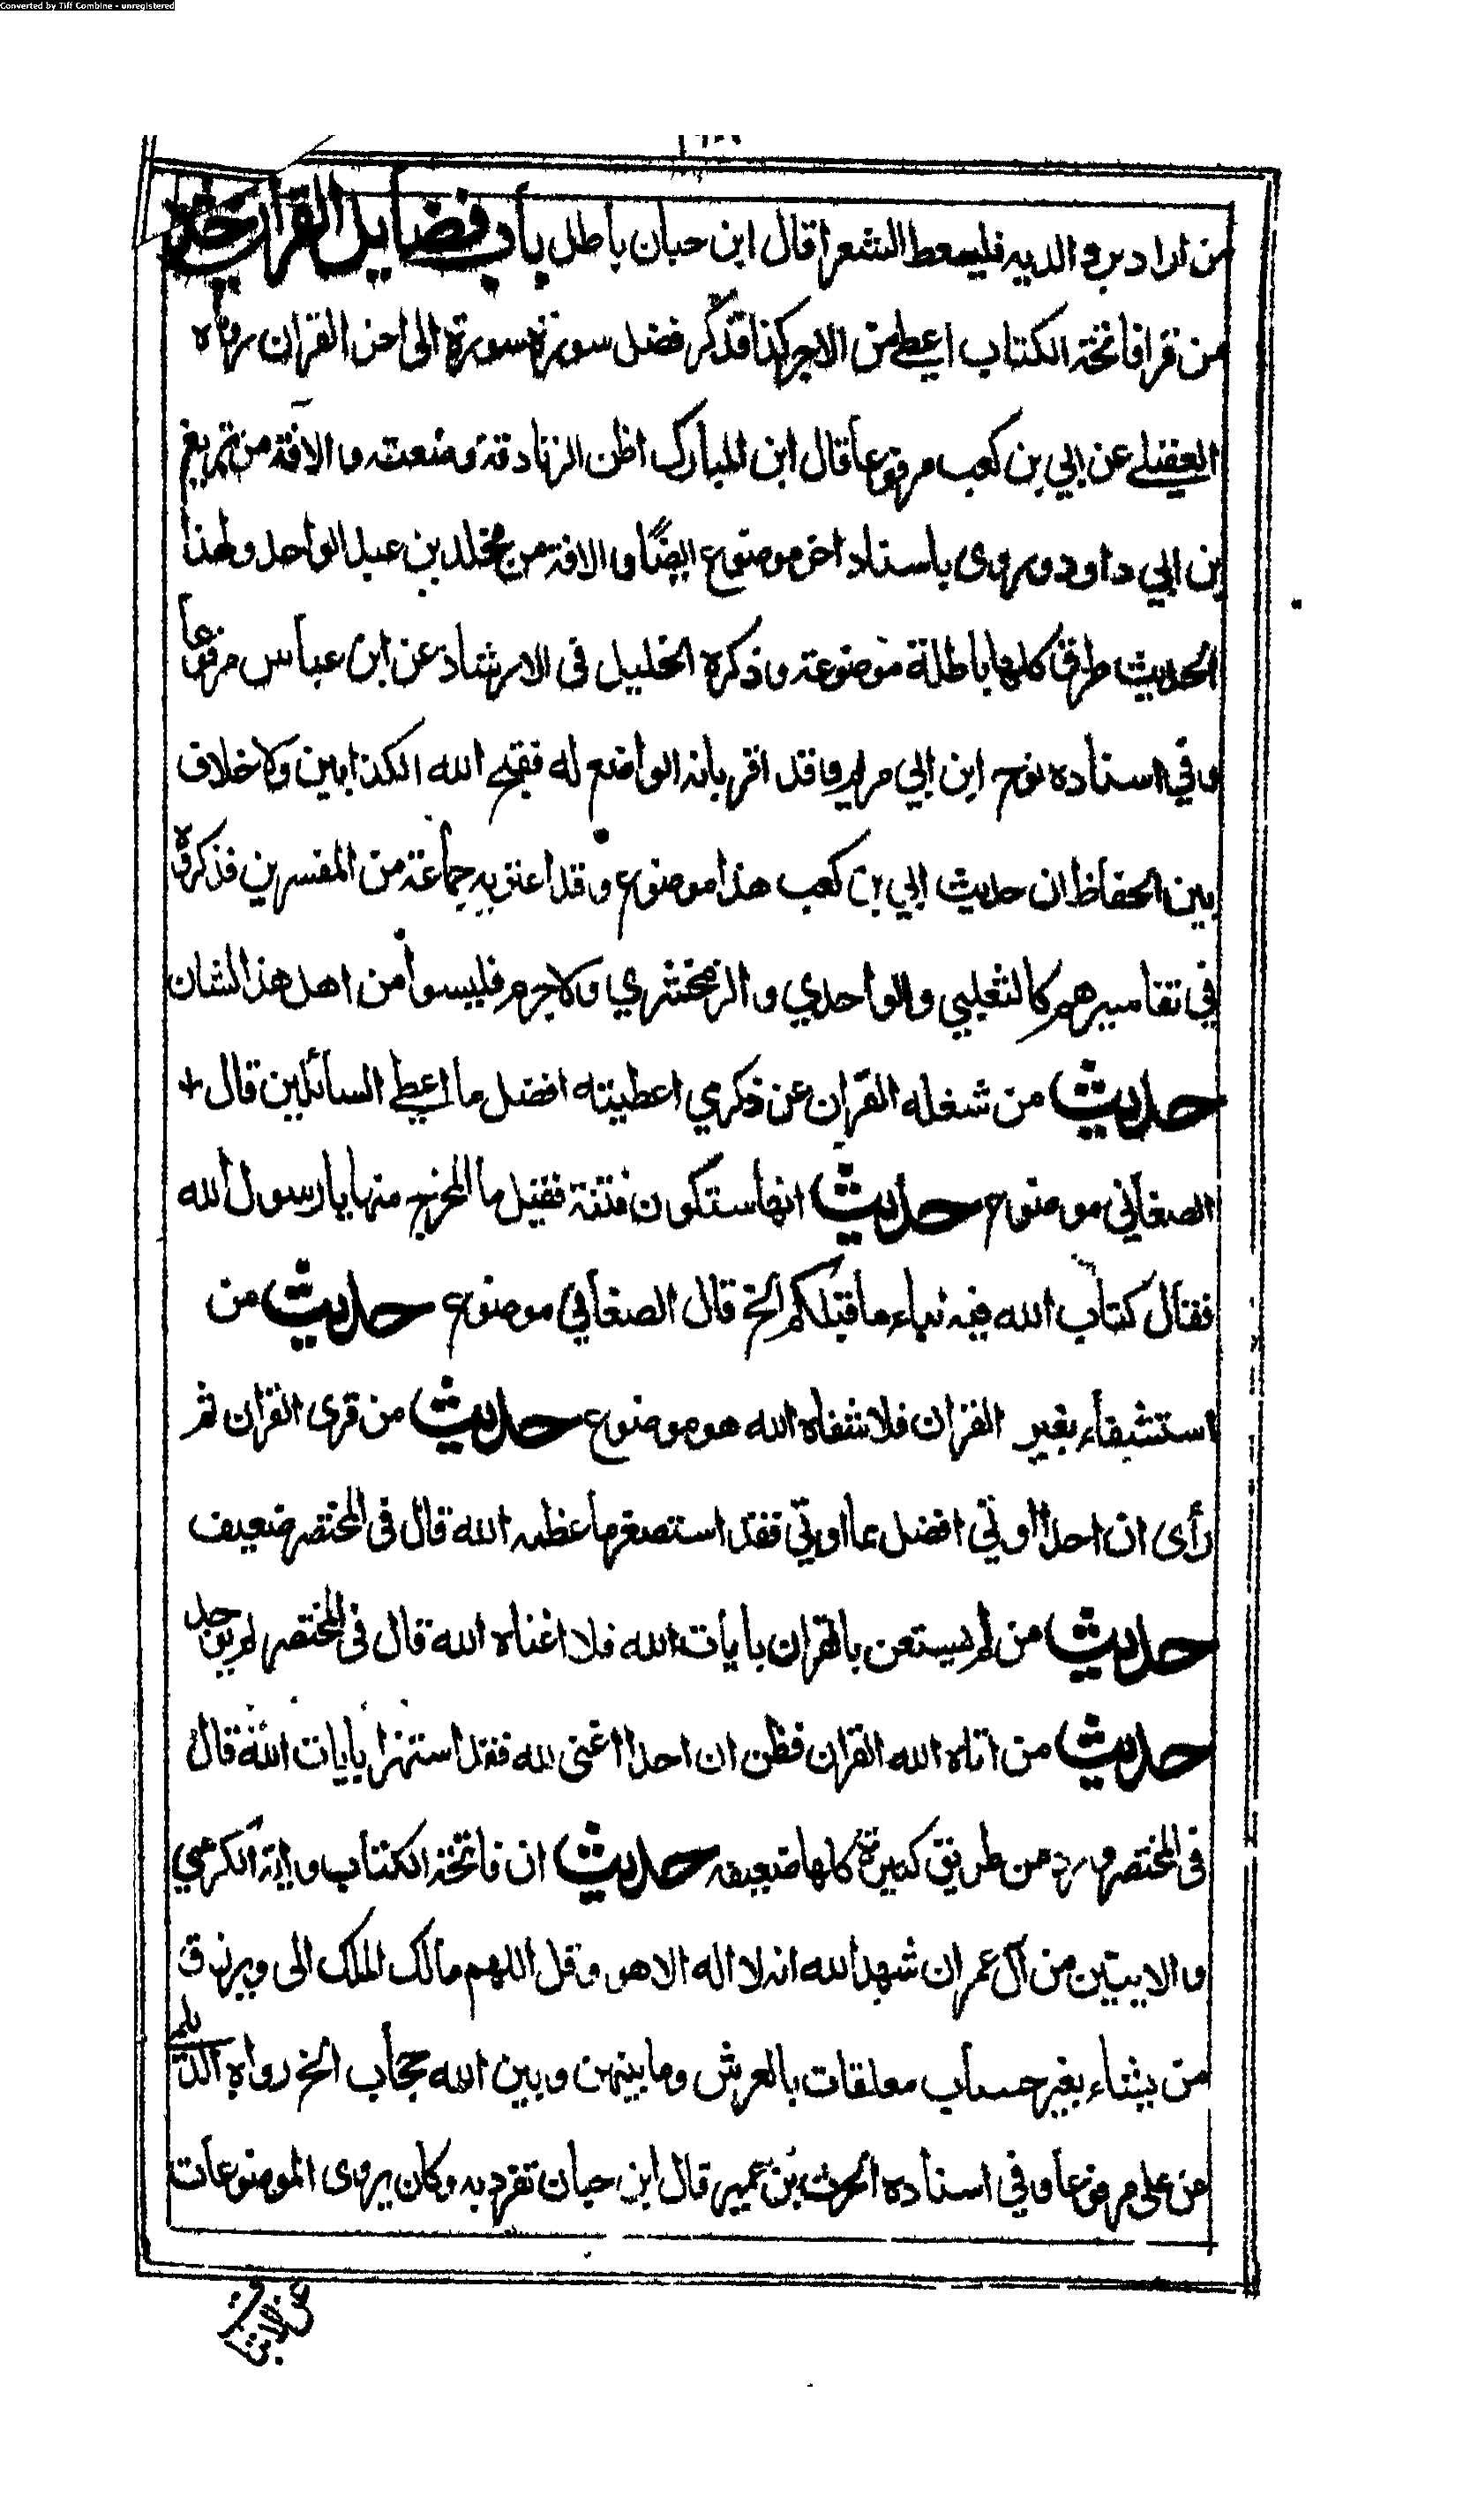 Converted by Tiff Combine - unregistered
من اراد بر والديه فليعط الشعرا قال ابن حبان باطل باب فضايل القران حديث
من قرا فاتحة الكتاب اعطي من الاجر كذا فذكر فضل سورة سورة الى اخر القران رواه
العقيلي عن ابي بن كعب مرفوعا قال ابن المبارك اظن الزنادقة وضعته والافة من بزيغ
بن ابي داود وروى باسناد اخر موضوع ايضًا والافة من مخلد بن عبد الواحد ولهذا
الحديث طرق كلها باطلة موضوعة وذكره الخليل فى الارشاد عن ابن عباس مرفوعا
وفي اسناده نوح ابن ابي مريم وقد اقر بانه الواضع له فقبح الله الكذابين ولاخلاف
بين الحفاظ ان حديث ابي بن كعب هذا موضوع وقد اغتر به جماعة من المفسرين فذكروه
في تفاسيرهم كالثعلبي والواحدي والزمخشري ولاجرم فليسوا من اهل هذا الشان
حديث من شغله القرآن عن ذكري اعطيته افضل ما اعطي السائلين قال
الصغاني موضوع حديث انها ستكون فتنة فقيل ما المخرج منها يا رسول الله
فقال كتاب الله فيه نباء ما قبلكم الخ قال الصغاني موضوع حديث من
استشفاء بغير القران فلا شفاه الله هو موضوع حديث من قرى القران ثم
رأى ان احدا اوتي افضل مما اوتي فقد استصغر ما عظمه الله قال فى المختصر ضعيف
حديث من لم يستغن بالقران بايات الله فلا اغناه الله قال فى المختصر لم يوجد
حديث من اتاه الله القران فظن ان احدا اغنى لله فقد استهزا بايات الله قال
فى المختصر ورد من طريق كثيرة كلها ضعيفه حديث ان فاتحة الكتاب واية الكرسي
والايتين من آل عمران شهد الله انه لا اله الا هو وقل اللهم مالك الملك الى ويرزق
من يشاء بغير حساب معلقات بالعرش وما بينهن وبين الله حجاب الخ رواه الديلمي
عن على مرفوعا وفي اسناده الحرث بن عمير قال ابن حبان تفرد به وكان يروى الموضوعات